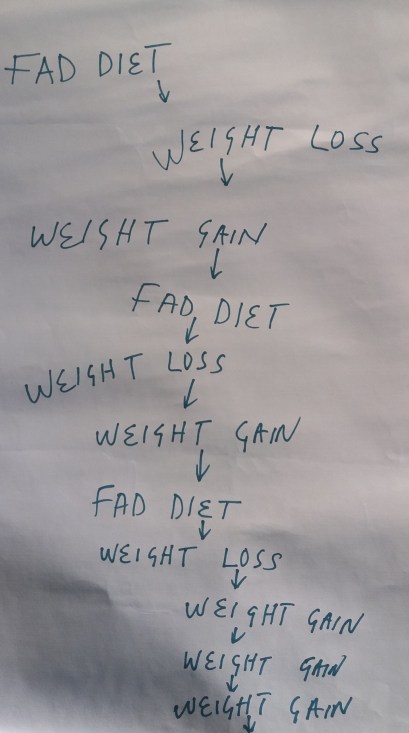 FAD DIET
↓
WEIGHT LOSS
↓
WEIGHT GAIN
↓
FAD DIET
↓
WEIGHT LOSS
↓
WEIGHT GAIN
↓
FAD DIET
↓
WEIGHT LOSS
↓
WEIGHT GAIN
↓
WEIGHT GAIN
↓
WEIGHT GAIN
↓